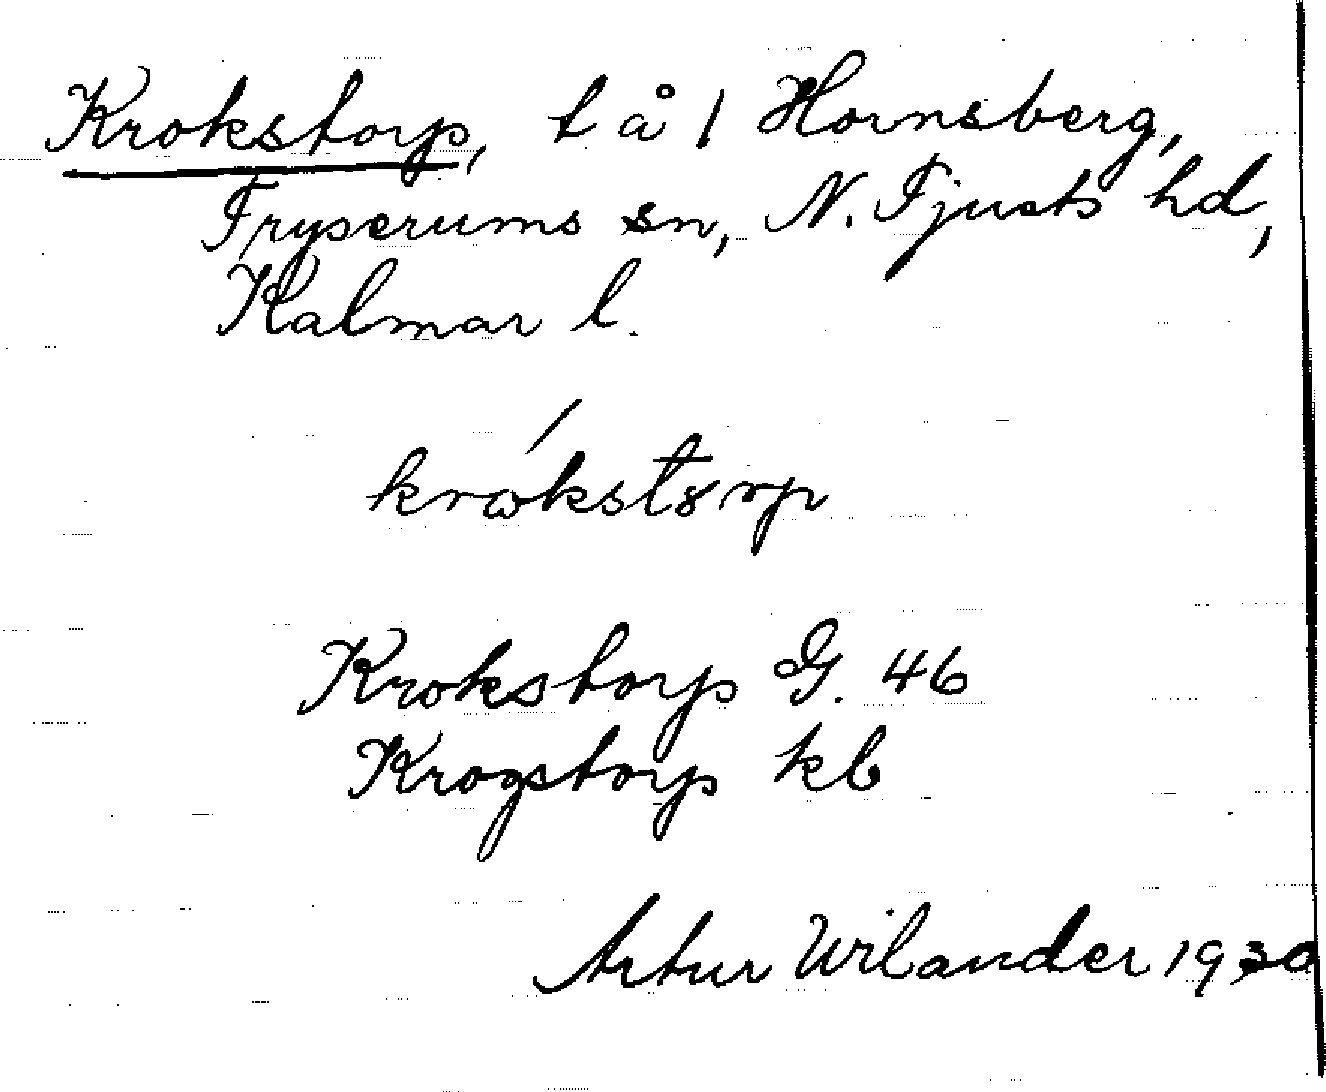 Krokstorp, t å 1 Hornsberg,
Tryserums sn, N. Tjusts hd,
Kalmar l.
krokstorp
Krokstorp G. 46
Krogstorp kb
Artur Wilander 1930